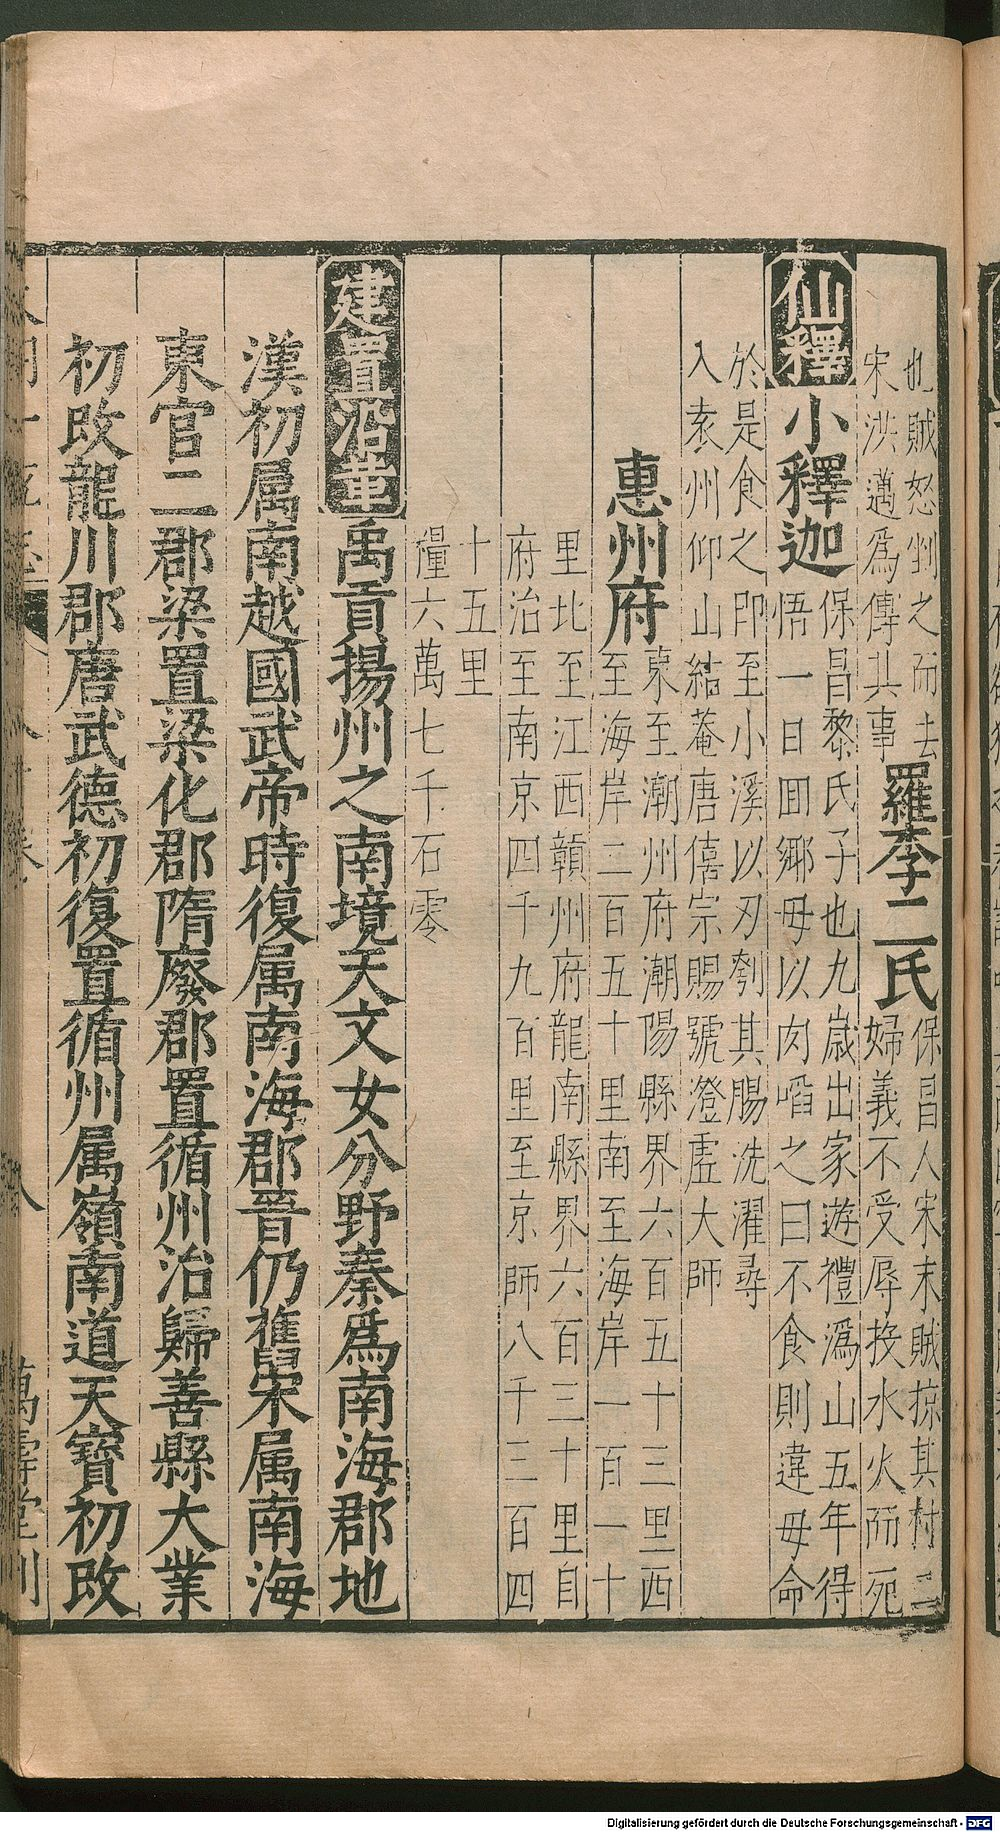 也賊怒剉之而去
宋洪邁爲傳其事
羅李二氏
保昌人宋末賊掠其村二
婦義不受辱投水火而死
仙釋
小釋迦
保昌黎氏子也九歲出家遊禮潙山五年得
悟一日囬鄉母以肉啗之曰不食則違母命
於是食之卽至小溪以刃刳其腸洗濯尋
入袁州仰山結菴唐僖宗賜號澄虛大師
惠州府
東至潮州府潮陽縣界六百五十三里西
至海岸二百五十里南至海岸一百一十
里北至江西贛州府龍南縣界六百三十里自
府治至南京四千九百里至京師八千三百四
十五里
糧六萬七千石零
建置沿革
禹貢揚州之南境天文女分野秦爲南海郡地
漢初属南越國武帝時復属南海郡晋仍舊宋属南海
東官二郡梁置梁化郡隋廢郡置循州治歸善縣大業
初改龍川郡唐武德初復置循州属嶺南道天寶初改
萬壽堂刋
Digitalisierung gefördert durch die Deutsche Forschungsgemeinschaft - DFG